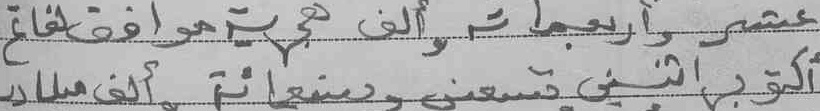 عشر وأربعمائة وألف هجرية موافق لفاتح
أكتوبر اثنين تسعين وتسعمائة وألف ميلاد